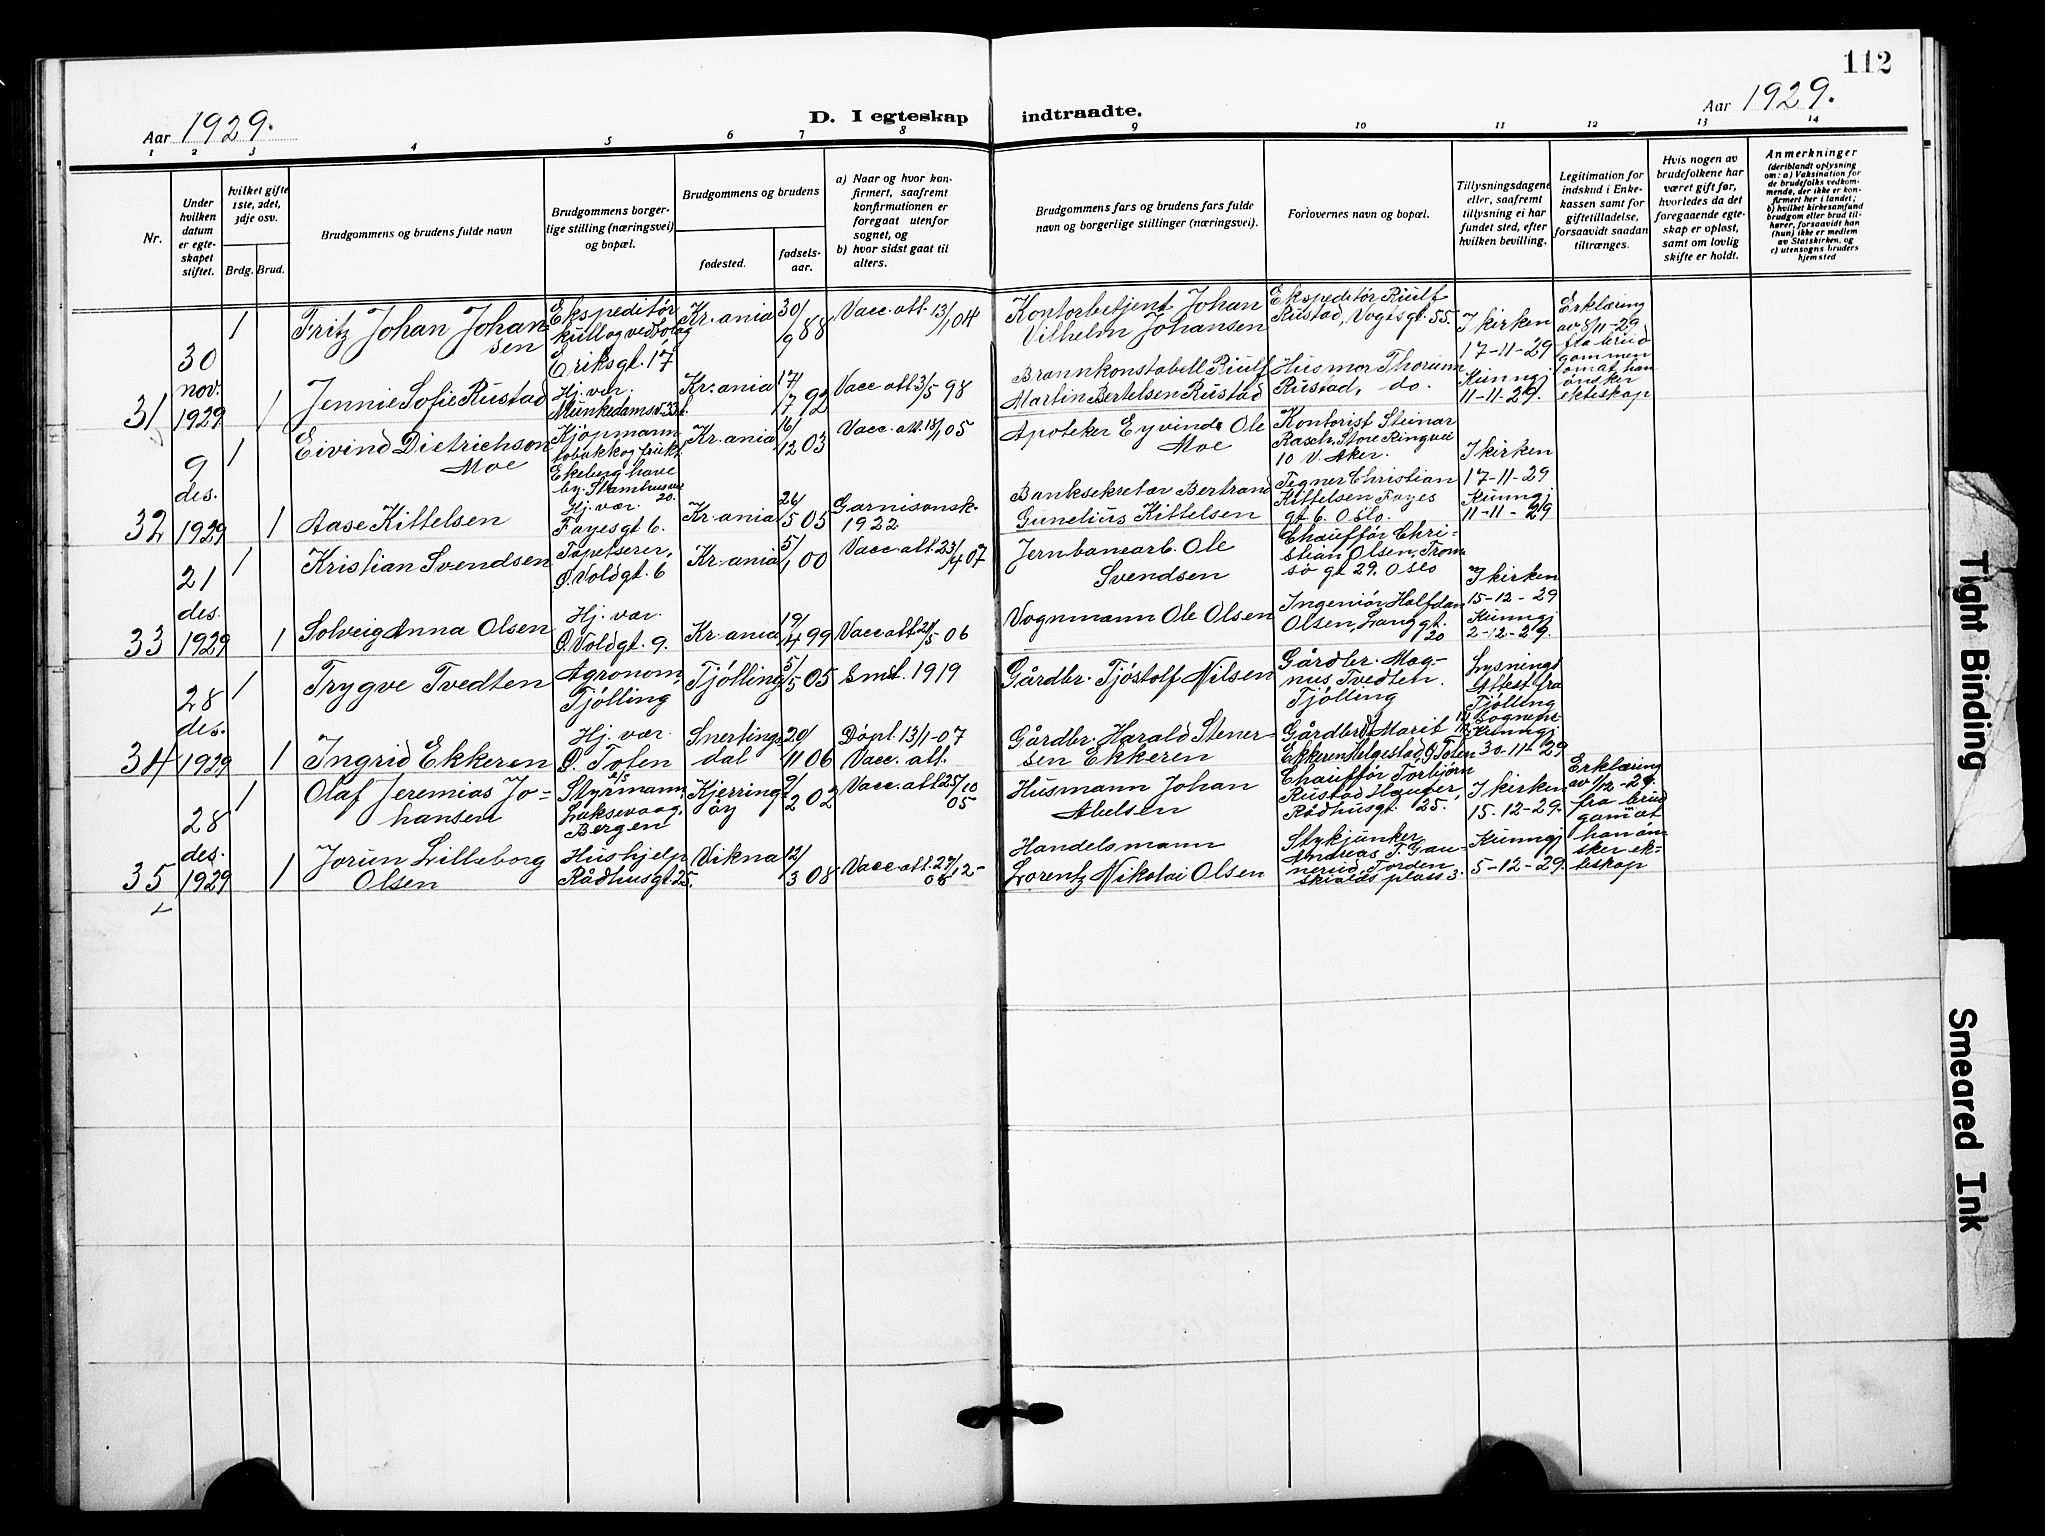 112
Aar 1929.
D. I egteskap indtraadte.
Aar 1929.
1 2 3 4 5 6 7 8 9 10 11 12 13 14
Nr.
Under hvilken datum er egteskapet stiftet.
hvilket gifte 1ste, 2det, 3dje osv.
Brdg. Brud.
Brudgommens og brudens fulde navn
Brudgommens borgerlige stilling (næringsvei) og bopæl.
Brudgommens og brudens
fødested.
fødselsaar.
a) Naar og hvor konfirmert, saafremt konfirmationen er foregaat utenfor sognet, og
b) hvor sidst gaat til alters.
Brudgommens fars og brudens fars fulde navn og borgerlige stillinger (næringsvei).
Forlovernes navn og bopæl.
Tillysningsdagene eller, saafremt tillysning ei har fundet sted, efter hvilken bevilling.
Legitimation for indskud i Enkekassen samt for giftetilladelse, forsaavidt saadan tiltrænges.
Hvis nogen av brudefolkene har været gift før, hvorledes da det foregaaende egteskap er opløst, samt om lovlig skifte er holdt.
Anmerkninger
(deriblandt oplysning om: a) Vaksination for de brudefolks vedkommende, der ikke er konfirmert her i landet; b) hvilket kirkesamfund brudgom eller brud tilhører, forsaavidt han (hun) ikke er medlem av Statskirken, og c) utensogns bruders hjemsted
31
30 nov. 1929
1
Fritz Johan Johansen
Ekspeditør kull og vedbolag Eriksgt. 17
Kr.ania
30/9 88
Vacc. att. 13/1 04
Kontorbetjent Johan Vilhelm Johansen
Ekspeditør Riulf Rustad, Vogtsgt. 55.
I kirken 17-11-29
Kunngj 11-11-29.
Erklæring av 8/11-29 fra brudgommen om at han ønsker ekteskap
1
Jennie Sofie Rustad
Hj. vær. Munkedamsv. 33
Kr.ania
17/17 92
Vacc. att. 3/5 98
Brannkonstabell Riulf Martin Bertelsen Rustad
Husmor Thorunn Rustad, do.
32
9 des. 1929
1
Eivind Dietrichson Moe
Kjøpmann tobakk og frukt Ekeberg haveby. Stamhusvei 20.
Kr.ania
16/12 03
Vacc. att. 18/1 05
Apoteker Eyvind Ole Moe
Kontorist Steinar Rasch, Store Ringvei 10 V. Aker.
I kirken 17-11-29
Kunngj 11-11-29
1
Aase Kittelsen
Hj. vær. Fayesgt 6.
Kr.ania
26/5 05
Garnisonsk. 1922
Banksekretær Bertrand Gunelius Kittelsen
Tegner Christian Kittelsen Fayes gt 6. Oslo.
33
21 des. 1929
1
Kristian Svendsen
Tapetserer, Ø. Voldgt. 6
Kr.ania
5/1 00
Vacc. att. 23/4 07
Jernbanearb. Ole Svendsen
Chauffør Christian Olsen, Tromsø gt 29. Oslo
I kirken 15-12-29
Kunngj 2-12-29.
1
Solveig Anna Olsen
Hj. vær. Ø. Voldgt. 9.
Kr.ania
19/4 99
Vacc att 21/5 06
Vognmann Ole Olsen
Ingeniør Halfdan Olsen, Langgt. 20
34
28 des. 1929
1
Trygve Tvedten
Agronom, Tjølling
Tjølling
5/5 05
Smst. 1919
Gårdbr. Tjøstolf Nilsen
Gårdbr. Magnus Tvedten. Tjølling
Lysnings Attest fra Tjølling sognepr.
Kunngj 30-11-29
1
Ingrid Ekkeren
Hj. vær. Ø. Toten
Snertingdal
20/11 06
Døpt. 13/1-07 Vacc. att.
Gårdbr. Harald Stenersen Ekkeren
Gårdbr. Marit Ekkeren Helgestad, Ø Toten
35
28 des. 1929
1
Olaf Jeremias Johansen
Styrmann, Laksevaag, Bergen
Kjerringøy
9/2 02
Vacc att 25/10 05
Husmann Johan Abelsen
Chauffør Torbjørn Rustad Hauger, Rådhusgt. 25.
I kirken 15-12-29.
Kunngj 5-12-29.
Erklæring av 1/12-29. fra brudgom at han ønsker ekteskap
1
Jorun Lilleborg Olsen
Hushjelp Rådhusgt. 25.
Vikna
12/3 08
Vacc att. 27/12-08
Handelsmann Lorentz Nikolai Olsen
Stykjunker Andreas T. Torden skiolds plass 3.
Tight Binding
Smeared Ink